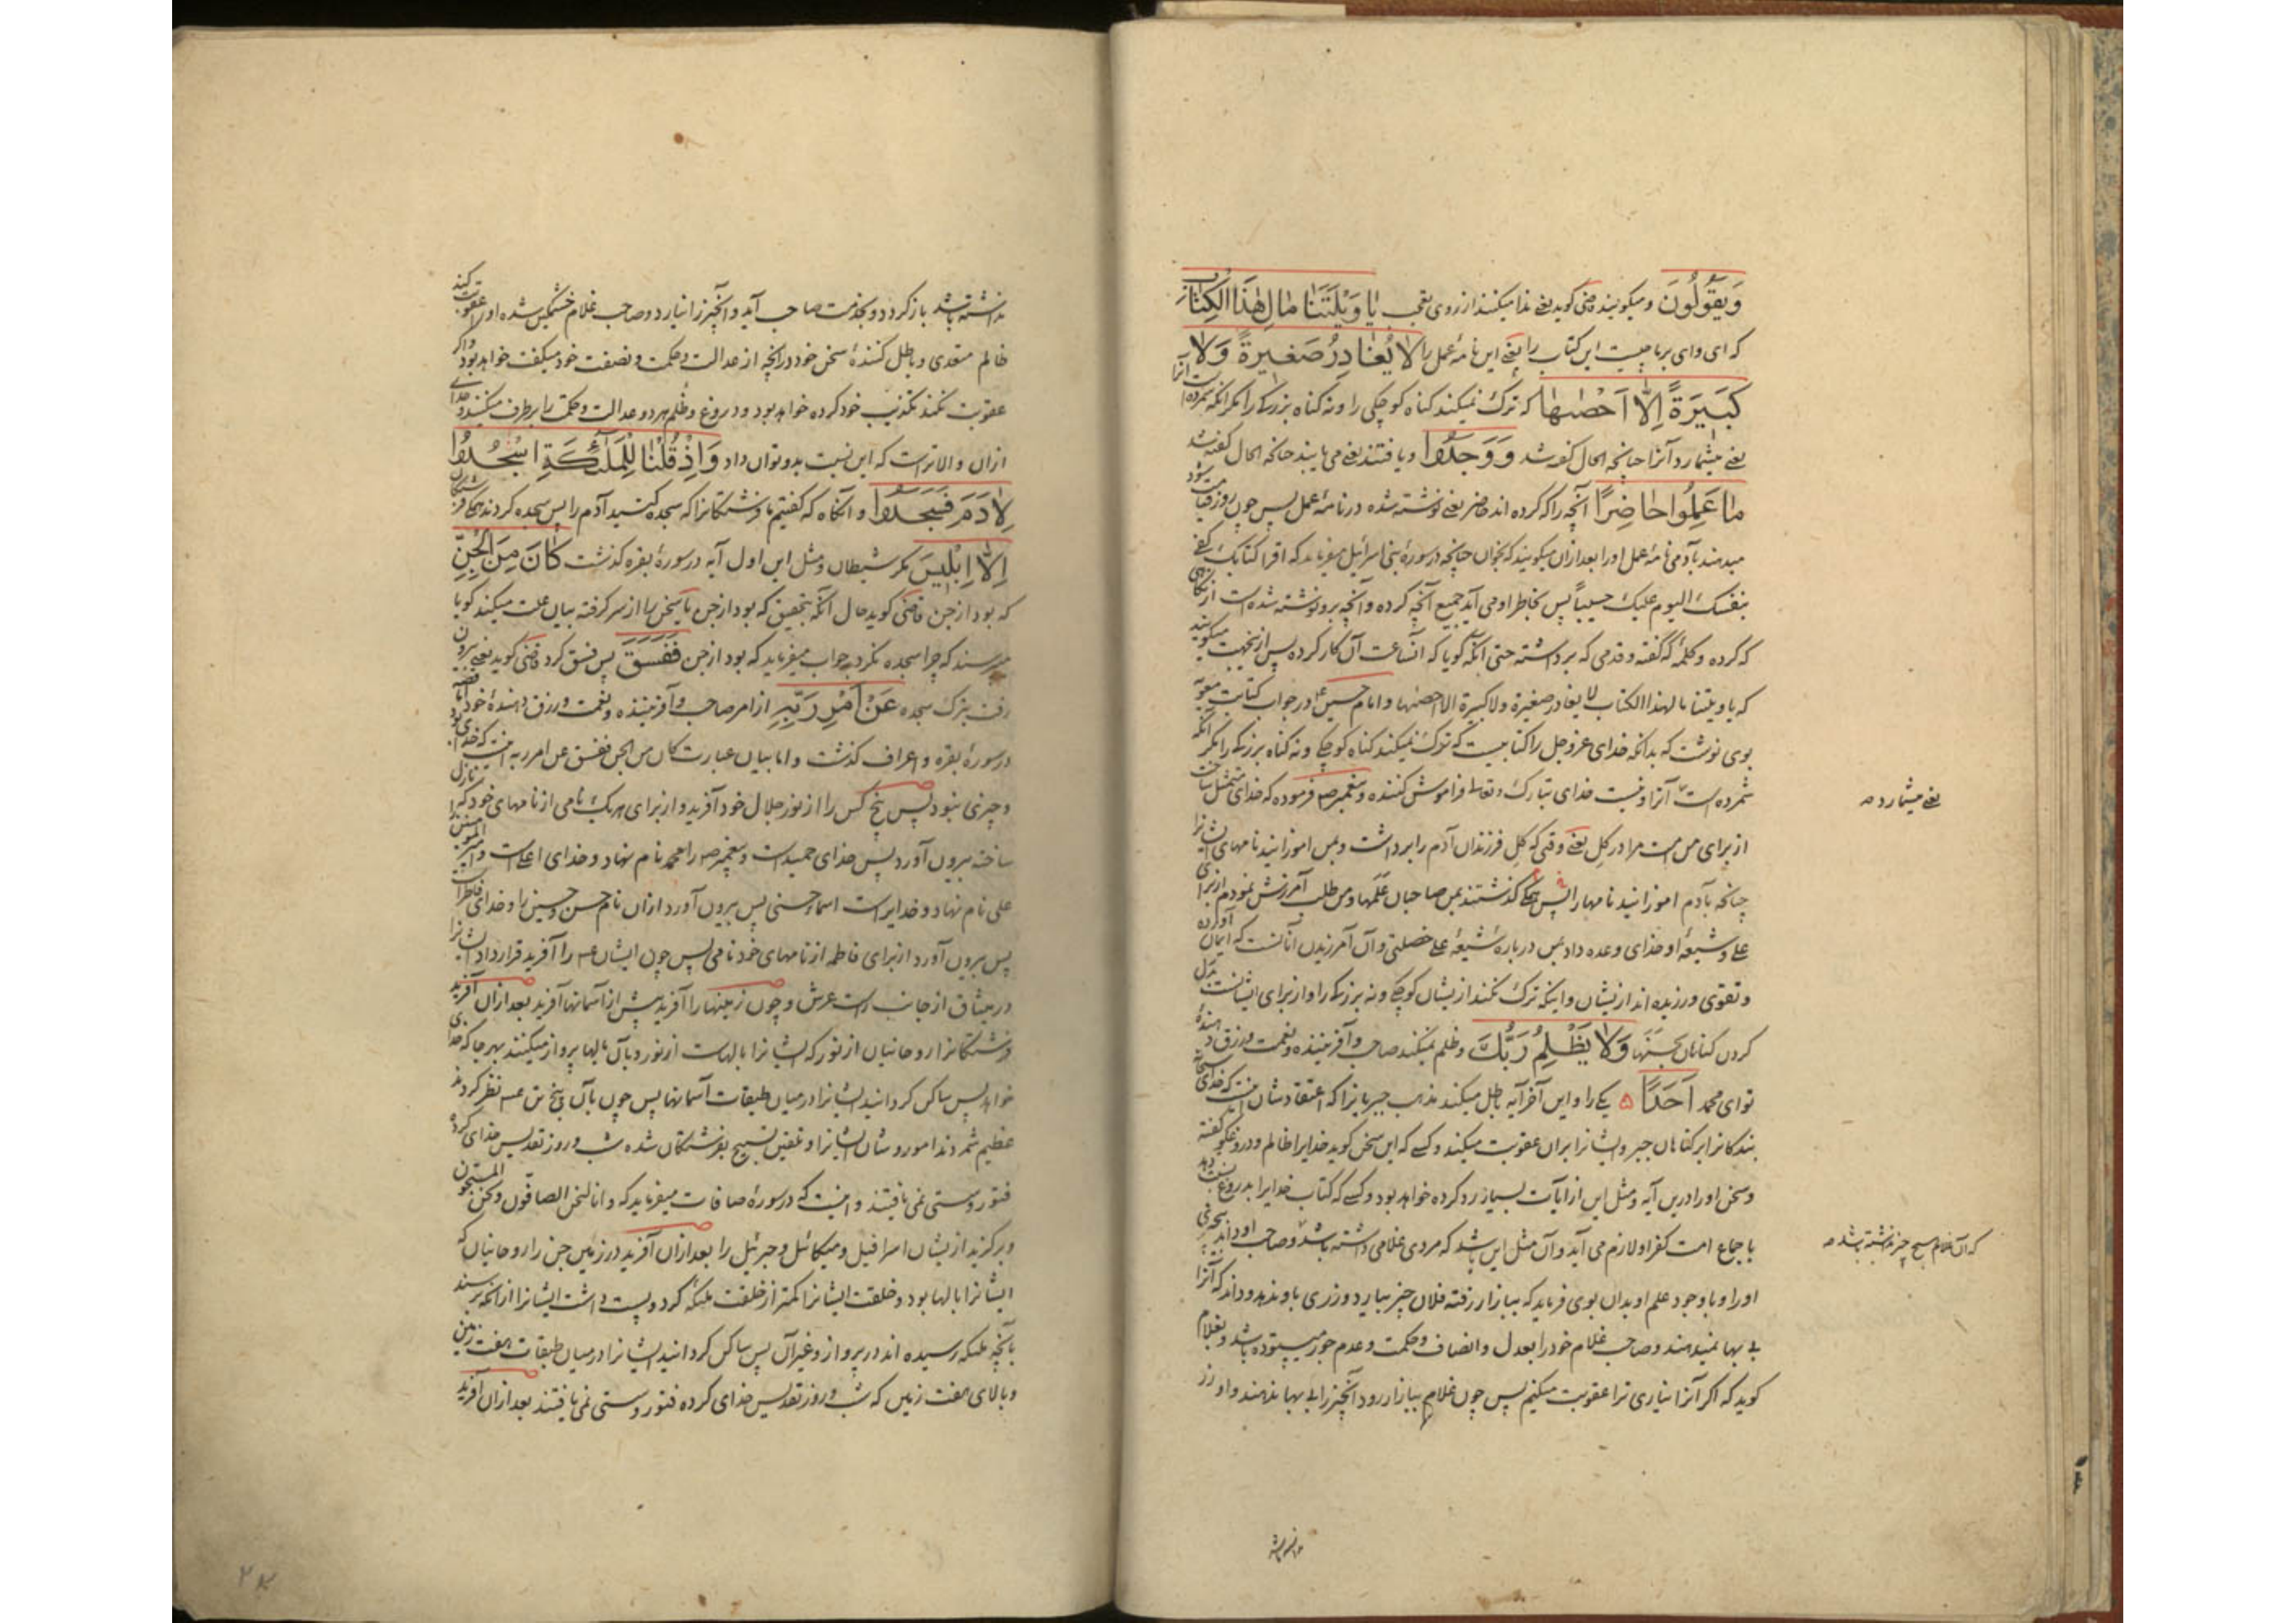 وَيَقُولُونَ و میکویند قاضی کوید یعنی ندا میکنند از روی تعجب يَا وَيْلَتَنَا مَالِ هٰذَا الْكِتَابِ
که ای وای بر ما چیست این کتاب را یعنی این نامهٔ عمل را لَا يُغَادِرُ صَغِيرَةً وَلَا
كَبِيرَةً اِلَّا اَحْصٰىهَا که ترک نمیکند کناه کوچکی را و نه کناه بزرک را مکر انکه شمرده است آنرا
یعنی میشمارد آنرا چنانچه الحال کفته شد وَوَجَدُوا و یافتند یعنی می یابند چنانکه الحال کفته شد
مَا عَمِلُوا حَاضِرًا آنچه را که کرده اند حاضر یعنی نوشته شده در نامهٔ عمل پس چون روز قیامت میشود
میدهند بآدمی نامهٔ عمل او را بعد ازان میکویند که بخوان چنانچه در سورهٔ بنی اسرائیل میفرماید که اقرا کتابک کفی
بنفسک الیوم علیک حسیباً پس بخاطر او می آید جمیع آنچه کرده و آنچه برو نوشته شده است از
که کرده و کلمهٔ که کفته و قدمی که برداشته حتی انکه کویا که آنساعت آن کار کرده پس ازینجهت میکویند
که یا ویلتنا مال هذا الکتاب لا یغادر صغیرة ولا کبیرة الا احصیها و امام حسین ع در جواب کتابت معویه
بوی نوشت که بدانکه خدای عزوجل را کتابیست که ترک نمیکند کناه کوچکی و نه کناه بزرک را مکر انکه
شمرده است آنرا و نیست خدای تبارک و تعالی فراموش کننده و پیغمبر ص فرموده که خدای متمثل ساخت
از برای من امت مرا در کل یعنی وقتی که کل فرزندان آدم را برداشت و بمن اموزانید نامهای ایشانرا
چنانچه بآدم اموزانید نامها را پس همکی کذشتند بمن صاحبان علمها و من طلب آمرزش نمودم از برای
علی و شیعهٔ او و خدای وعده داد بمن دربارهٔ شیعهٔ علی خصلتی و آن آمرزیدن آنانست که ایمان آورده
و تقوی ورزیده اند از یشان و اینکه ترک نکند از یشان کوچکی و نه بزرک را و از برای ایشانست بدل
کردن کناهان بحسنها وَلَا يَظْلِمُ رَبُّكَ و ظلم نمیکند صاحب و آفریننده و نعمت و رزق دهندهٔ
تو ای محمد اَحَدًا ۵ یکی را و این آخر آیه باطل میکند مذهب جبریانرا که اعتقادشان اینست که خدای سبحانه
بندکانرا بر کناهان جبر و ایشانرا بران عقوبت میکند و کسی که این سخن کوید خدایرا ظالم و دروغکو کفته
و سخن او را درین آیه و مثل این از آیات بسیار رد کرده خواهد بود و کسی که کتاب خدایرا بدروغ نسبت دهد
باجماع امت کفر او لازم می آید و آن مثل این باشد که مردی غلامی داشته باشد و صاحب او داند
او را و با وجود علم او بدان بوی فرماید که ببازار رفته فلان چیز بیارد و زری باو ندهد و داند که آنرا
بی بها نمیدهند و صاحب غلام خود را بعدل و انصاف و حکمت و عدم جور میستوده باشد و بغلام
کوید که اکر آنرا نیاری ترا عقوبت میکنم پس چون غلام ببازار رود آنچیز را بی بها ندهند و او زر
یعنی میشمارد ص
که آن غلام هیچ چیز نداشته باشد ص
نداشته باشد
نداشته باشد باز کردد و بخدمت صاحب آید و آنچیز را نیارد و صاحب غلام خشمکین شده او را عقوبت کند
ظالم متعدی و باطل کنندهٔ سخن خود در آنچه از عدالت و حکمت و نصفت خود میکفت خواهد بود و اکر
عقوبت نکند تکذیب خود کرده خواهد بود و دروغ و ظلم هر دو عدالت و حکمت را برطرف میکنند و خدای
ازان والاتر است که این نسبت بدو توان داد وَاِذْ قُلْنَا لِلْمَلٰٓئِكَةِ اسْجُدُوا
لِاٰدَمَ فَسَجَدُوا و آنکاه که کفتیم ما فرشتکانرا که سجده کنید آدم را پس سجده کردند همکی فرشتکان
اِلَّا اِبْلِيسَ مکر شیطان و مثل این اول آیه در سورهٔ بقره کذشت كَانَ مِنَ الْجِنِّ
که بود از جن قاضی کوید حال آنکه بتحقیق که بود از جن یا سخن را از سر کرفته بیان علت میکند کویا
میپرسند که چرا سجده نکرد بجواب میفرماید که بود از جن فَفَسَقَ پس فسق کرد قاضی کوید یعنی بیرون
رفت بترک سجده عَنْ اَمْرِ رَبِّهِ از امر صاحب و آفریننده و نعمت و رزق دهندهٔ خود اما قصه
در سورهٔ بقره و اعراف کذشت و اما بیان عبارت کان من الجن ففسق عن امر ربه اینست که خدای بود
و چیزی نبود پس پنج کس را از نور جلال خود آفرید و از برای هر یک نامی از نامهای خود که نازل
ساخت بیرون آورد پس خدای حمید است و پیغمبر ص را محمد نام نهاد و خدای اعلی است و امیر المؤمنین را
علی نام نهاد و خدایراست اسماء حسنی پس بیرون آورد ازان نام حسن و حسین را و خدای فاطر است
پس بیرون آورد از برای فاطمه از نامهای خود نامی پس چون ایشان ع را آفرید قرار داد ایشانرا
در میثاق از جانب راست عرش و چون زمینها را آفرید پیش از آسمانها آفرید بعد ازان آفرید
فرشتکانرا روحانیان از نور که ایشانرا بالهاست از نور و بآن بالها پرواز میکنند بهر جا که خدای
خواهد پس ساکن کردانید ایشانرا در میان طبقات آسمانها پس چون بآن پنج تن ع نظر کردند
عظیم شمردند امور و شان ایشانرا و تلقین تسبیح بفرشتکان شده شب و روز تقدیس خدای کرده
فتور و سستی نمی یافتند و اینست که در سورهٔ صافات میفرماید که وانا لنحن الصافون و نحن المسبحون
و برکزید از یشان اسرافیل و میکائیل و جبرئیل را بعد ازان آفرید در زمین جن را روحانیان که
ایشانرا بالها بود و خلقت ایشانرا کمتر از خلقت ملیکه کرد و پست داشت ایشانرا از انکه برسند
بآنچه ملیکه رسیده اند در پرواز و غیر آن پس ساکن کردانید ایشانرا در میان طبقات هفت زمین
و بالای هفت زمین که شب و روز تقدیس خدای کرده فتور و سستی نمی یافتند بعد ازان آفرید